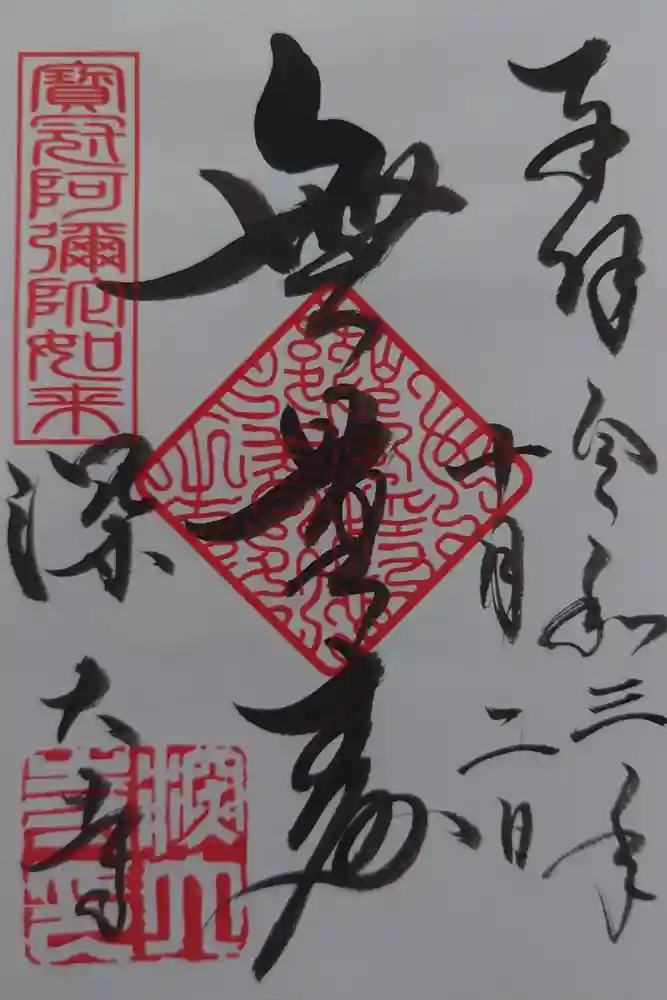 奉拝
令和三年
十月二日
無量寿
寶冠阿彌陀如来
深大寺